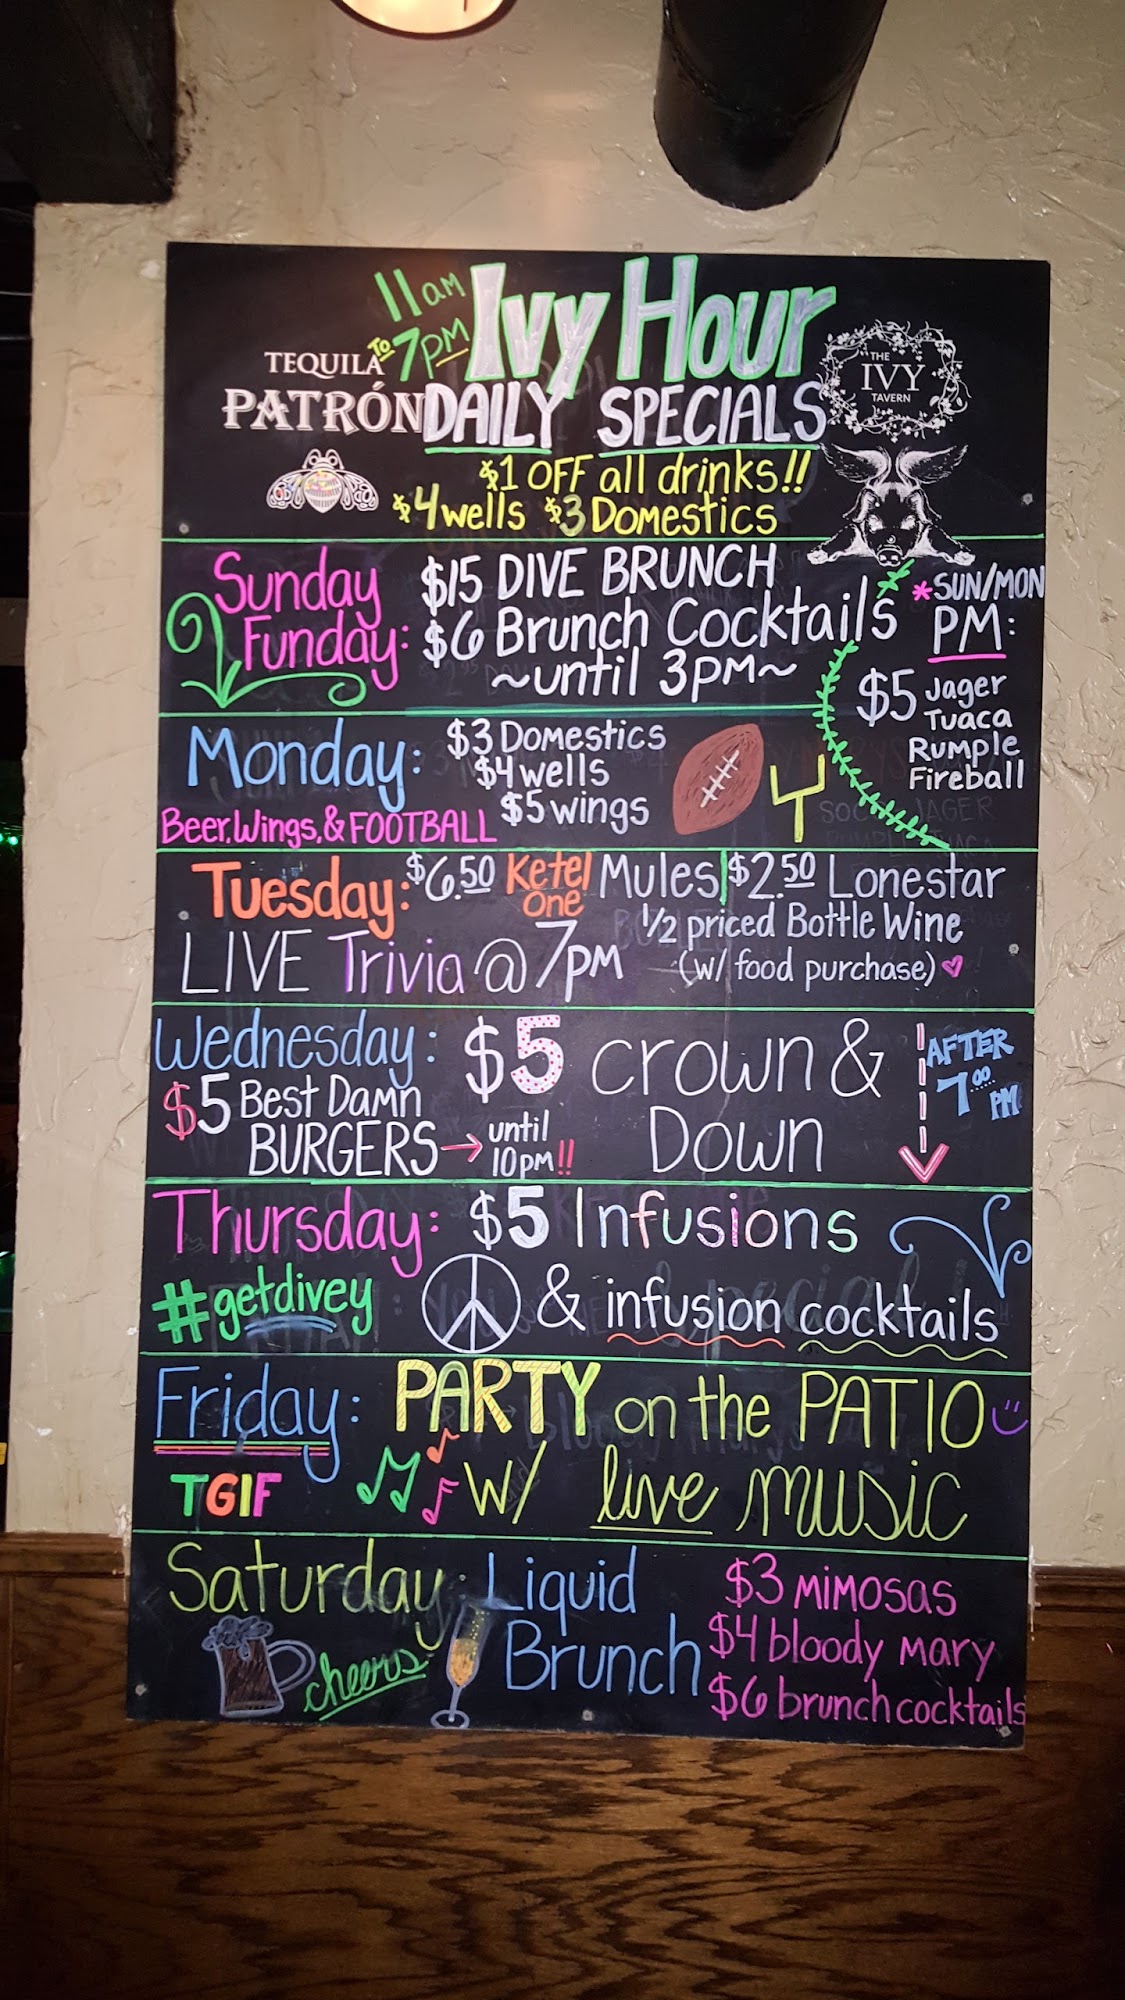 11am to 7pm Ivy Hour
TEQUILA
PATRÓN
DAILY SPECIALS
THE
IVY
TAVERN
$1 OFF all drinks!!
$4 wells $3 Domestics
Sunday Funday:
$15 DIVE BRUNCH
$6 Brunch Cocktails
~until 3pm~
*SUN/MON
PM:
$5 Jager
Tuaca
Rumple
Fireball
Monday:
$3 Domestics
$4 wells
$5 wings
Beer, Wings, & FOOTBALL
Tuesday: $6.50 Ketel One Mules | $2.50 Lonestar
1/2 priced Bottle Wine
(w/ food purchase)
LIVE Trivia @ 7pm
Wednesday: $5 crown &
Down
AFTER
7:00
PM
$5 Best Damn
BURGERS → until
10pm!!
Thursday: $5 Infusions
#getdivey & infusion cocktails
Friday: PARTY on the PATIO
TGIF w/ live music
Saturday: Liquid
Brunch
cheers
$3 mimosas
$4 bloody mary
$6 brunch cocktails